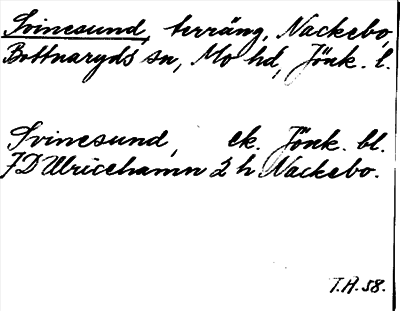 Svinesund, terräng, Nackebo,
Bottnaryds sn, Mo hd, Jönk. l.
Svinesund, ek. Jönk. bl.
JD Ulricehamn 2 h Nackebo.
T.A. 58.